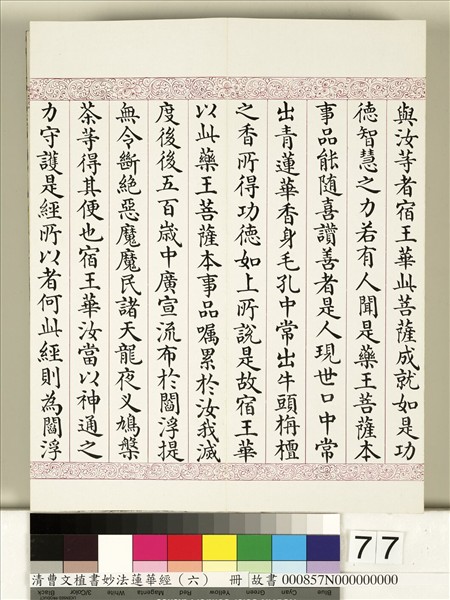 與汝等者宿王華此菩薩成就如是功
德智慧之力若有人聞是藥王菩薩本
事品能隨喜讚善者是人現世口中常
出青蓮華香身毛孔中常出牛頭栴檀
之香所得功德如上所說是故宿王華
以此藥王菩薩本事品囑累於汝我滅
度後後五百歲中廣宣流布於閻浮提
無令斷絕惡魔魔民諸天龍夜叉鳩槃
荼等得其便也宿王華汝當以神通之
力守護是經所以者何此經則為閻浮
77
Blue Cyan Green Yellow Red Magenta White 3/Color Black
清曹文植書妙法蓮華經（六） 冊 故書 000857N000000000